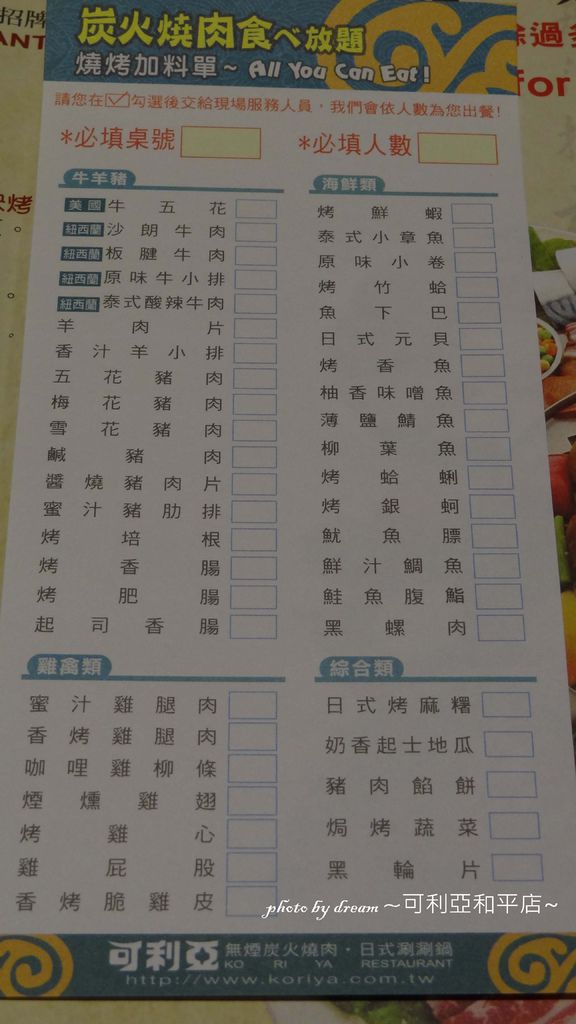 招牌
ANT
炭火燒肉食べ放題
燒烤加料單~ All You Can Eat!
除過
for
請您在☑勾選後交給現場服務人員，我們會依人數為您出餐!
*必填桌號
*必填人數
烤
牛羊豬
美國 牛五花
紐西蘭 沙朗牛肉
紐西蘭 板腱牛肉
紐西蘭 原味牛小排
紐西蘭 泰式酸辣牛肉
羊肉片
香汁羊小排
五花豬肉
梅花豬肉
雪花豬肉
鹹豬肉
醬燒豬肉片
蜜汁豬肋排
烤培根
烤香腸
烤肥腸
起司香腸
海鮮類
烤鮮蝦
泰式小章魚
原味小卷
烤竹蛤
魚下巴
日式元貝
烤香魚
柚香味噌魚
薄鹽鯖魚
柳葉魚
烤蛤蜊
烤銀蚵
魷魚膘
鮮汁鯛魚
鮭魚腹鮨
黑螺肉
雞禽類
蜜汁雞腿肉
香烤雞腿肉
咖哩雞柳條
煙燻雞翅
烤雞心
雞屁股
香烤脆雞皮
綜合類
日式烤麻糬
奶香起士地瓜
豬肉餡餅
焗烤蔬菜
黑輪片
photo by dream ~可利亞和平店~
可利亞 無煙炭火燒肉・日式涮涮鍋
KO RI YA RESTAURANT
http://www.koriya.com.tw